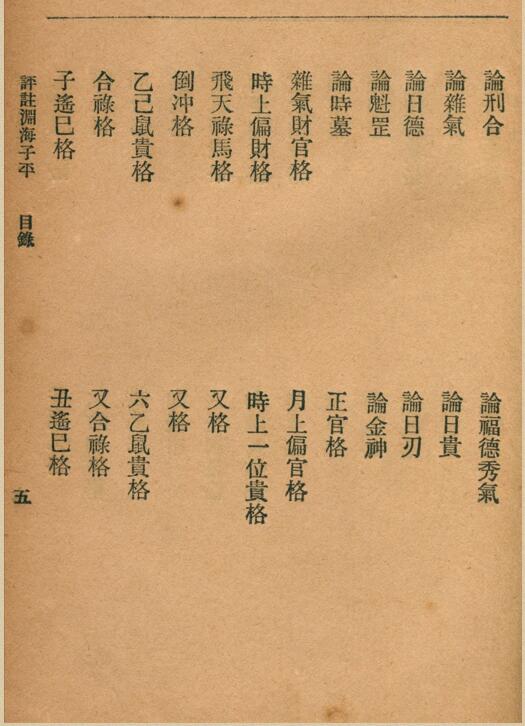 論刑合　論福德秀氣
論雜氣　論日貴
論日德　論日刃
論魁罡　論金神
論時墓　正官格
雜氣財官格　月上偏官格
時上偏財格　時上一位貴格
飛天祿馬格　又格
倒冲格　又格
乙己鼠貴格　六乙鼠貴格
合祿格　又合祿格
子遙巳格　丑遙巳格
評註淵海子平　目錄　五